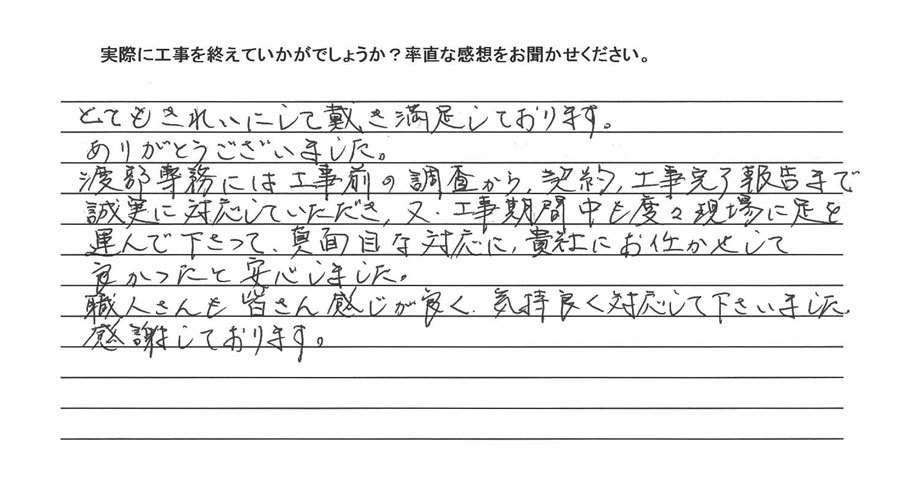 実際に工事を終えていかがでしょうか？率直な感想をお聞かせください。
とてもきれいにして戴き満足しております。
ありがとうございました。
渡部専務には工事前の調査から、契約、工事完了報告まで
誠実に対応していただき、又、工事期間中も度々現場に足を
運んで下さって、真面目な対応に、貴社にお任かせして
良かったと安心しました。
職人さんも皆さん感じが良く、気持良く対応して下さいました。
感謝しております。